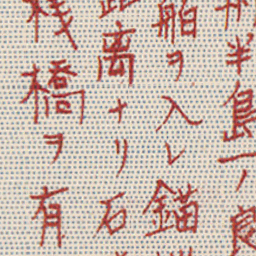 半島一ノ良
舶ヲ入レ錨
距離ナリ石
桟橋ヲ有